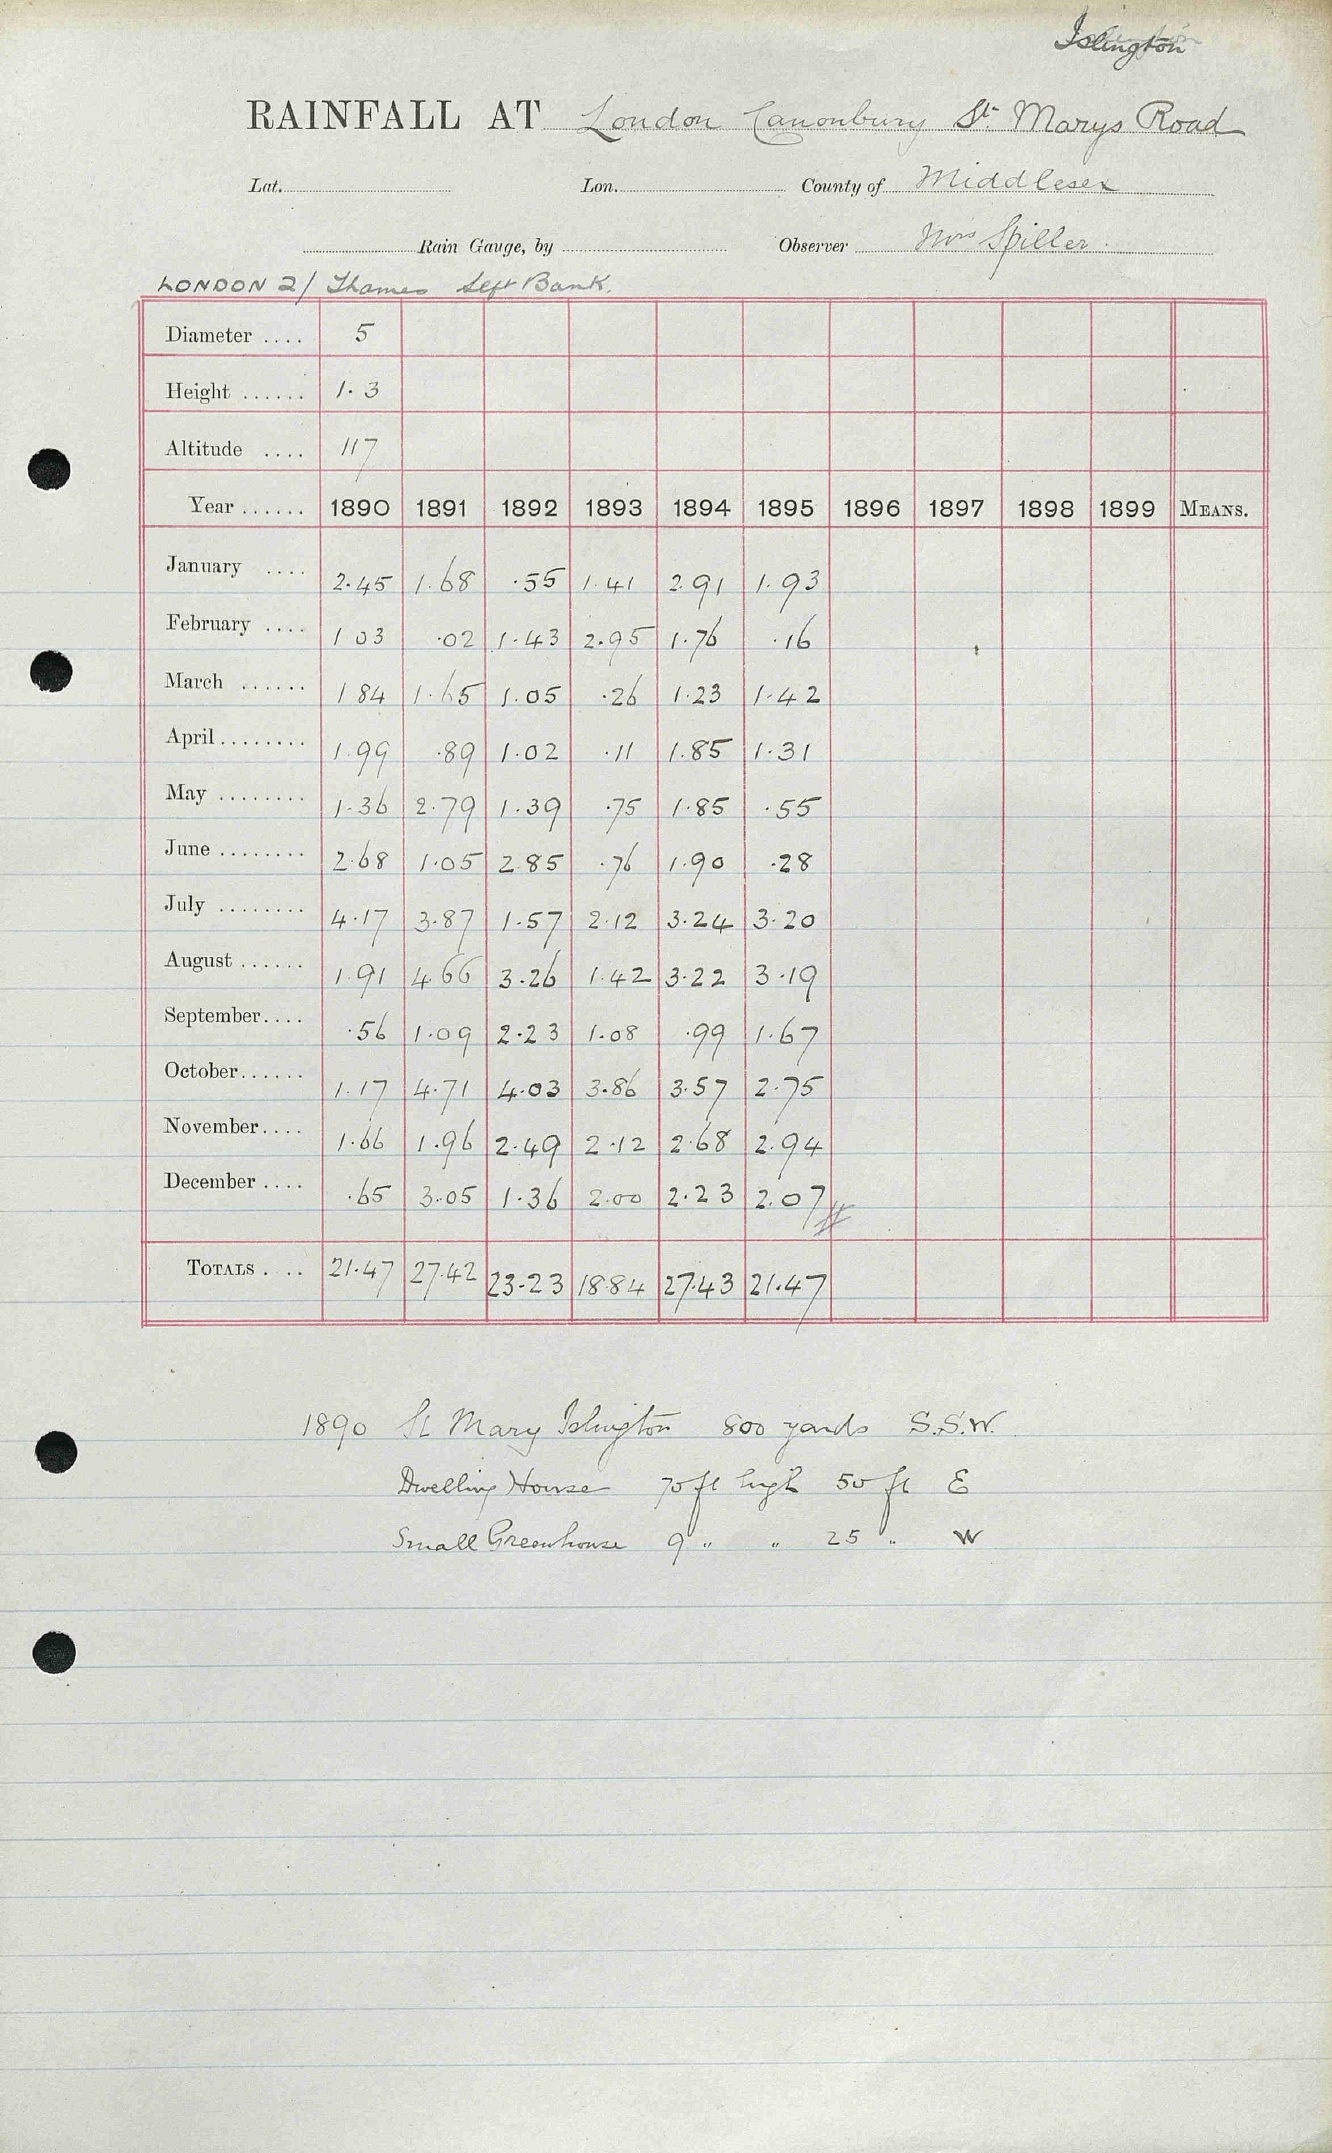 Islington
RAINFALL AT London Canonbury St. Marys Road
Lat. Lon. County of Middlesex
Rain Gauge, by Observer Mrs Spiller.
LONDON 2/ Thames Left Bank.
Diameter .... 5
Height ...... 1.3
Altitude .... 117
Year ...... 1890 1891 1892 1893 1894 1895 1896 1897 1898 1899 MEANS.
January .... 2.45 1.68 .55 1.41 2.91 1.93
February .... 1 03 .02 1.43 2.95 1.76 .16
March ...... 1 84 1.65 1.05 .26 1.23 1.42
April ........ 1.99 .89 1.02 .11 1.85 1.31
May ........ 1.36 2.79 1.39 .75 1.85 .55
June ........ 2.68 1.05 2.85 .76 1.90 .28
July ........ 4.17 3.87 1.57 2.12 3.24 3.20
August ...... 1.91 4.66 3.26 1.42 3.22 3.19
September.... .56 1.09 2.23 1.08 .99 1.67
October...... 1.17 4.71 4.03 3.86 3.57 2.75
November.... 1.66 1.96 2.49 2.12 2.68 2.94
December .... .65 3.05 1.36 2.00 2.23 2.07
TOTALS .... 21.47 27.42 23.23 18.84 27.43 21.47
1890 St Mary Islington 800 yards S.S.W.
Dwelling House 70 ft high 50 ft E
Small Greenhouse 9 " " 25 " W